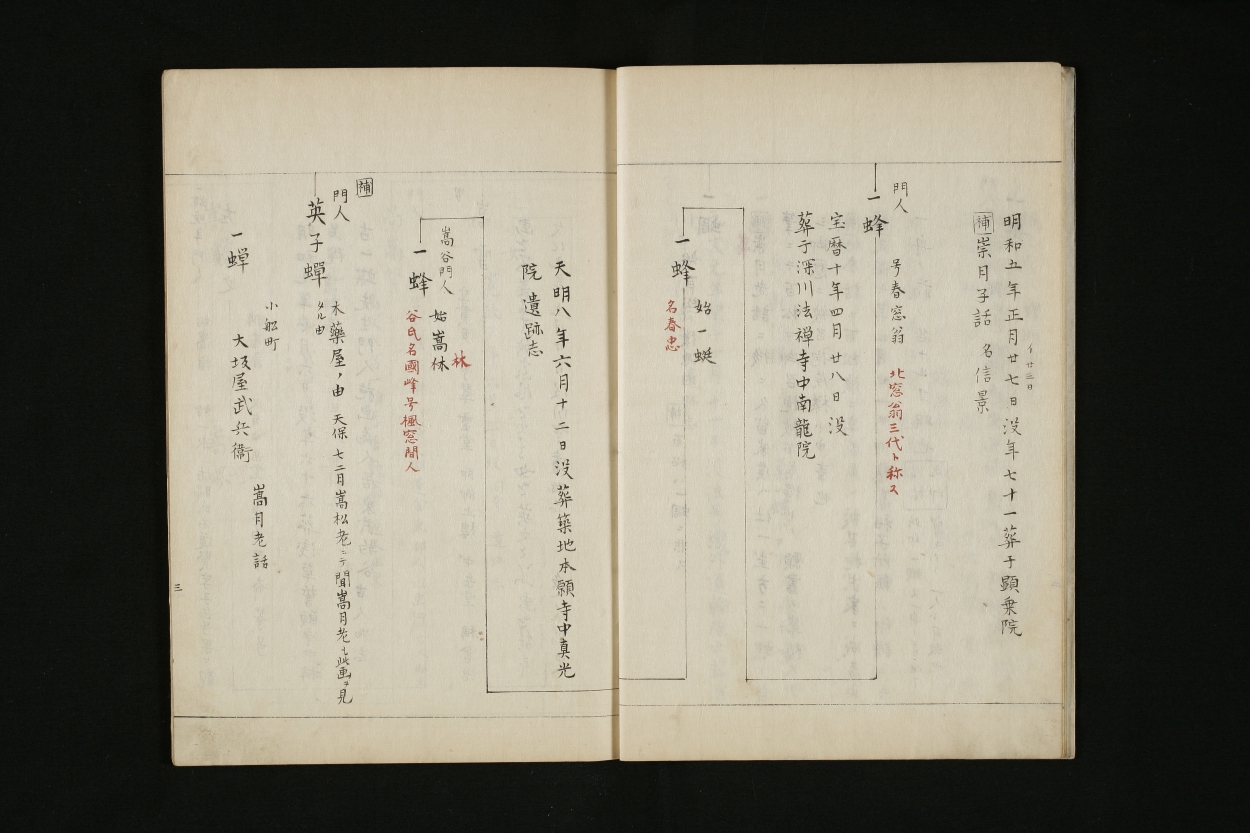 明和五年正月廿七日没年七十一葬于顕乗院
イ廿三日
補 崇月子話 名信景
門人
一蜂 号春窓翁 北窓翁三代ト称ス
宝暦十年四月廿八日没
葬于深川法禅寺中南龍院
一蜂 始一蜓
名春忠
天明八年六月十二日没葬築地本願寺中真光
院 遺跡志
嵩谷門人
一蜂 始嵩休
林
谷氏名國峰号楓窓間人
補
門人
英子蟬 木薬屋ノ由 天保七二月嵩松老ニテ聞嵩月老モ此画ヲ見
タル由
小舩町
一蟬 大坂屋武兵衞 嵩月老話
三